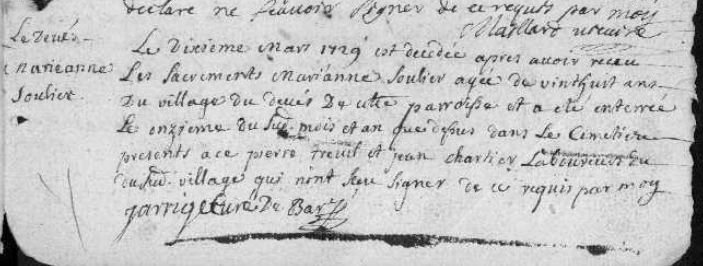 declaré ne sçavoir signer de ce requis par moy
Maillard vicaire
Le Devés
Marieanne
Soulier
Le Dixieme Mars 1729 est decedée apres avoir receu
Les Sacrements Mariânne Soulier agée de vinthuit ans
Du village du devés De cette parroisse et a eté enterrée
Le onzieme du sud. mois et an que desus dans Le Cemetiere
presents a ce pierre treuil et jean chartier Laboureurs du
dusud. village qui nont sceu signer de ce requis par moy
jarrige Curé De Bar